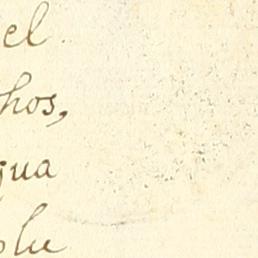 el
hos,
qua
plu